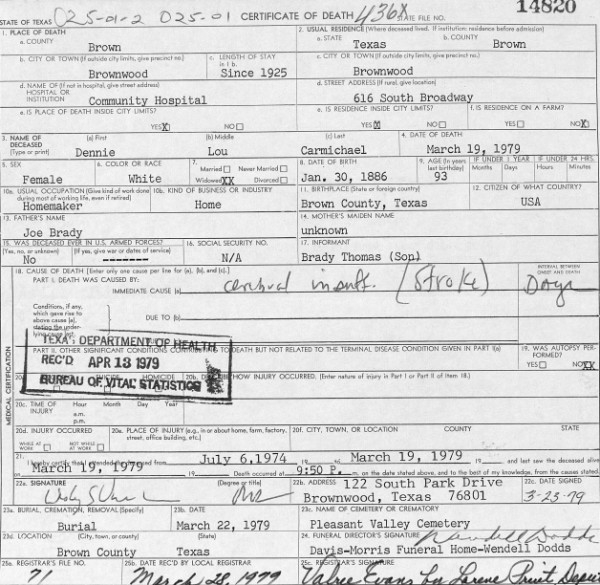 14820
STATE OF TEXAS 025-01-2 025-01 CERTIFICATE OF DEATH 436X STATE FILE NO.
1. PLACE OF DEATH 2. USUAL RESIDENCE (Where deceased lived. If institution: residence before admission)
a. COUNTY a. STATE b. COUNTY
Brown Texas Brown
b. CITY OR TOWN (If outside city limits, give precinct no.) c. LENGTH OF STAY in 1 b. c. CITY OR TOWN (If outside city limits, give precinct no.)
Brownwood Since 1925 Brownwood
d. NAME OF (If not in hospital, give street address) d. STREET ADDRESS (If rural, give location)
HOSPITAL OR
INSTITUTION Community Hospital 616 South Broadway
e. IS PLACE OF DEATH INSIDE CITY LIMITS? e. IS RESIDENCE INSIDE CITY LIMITS? f. IS RESIDENCE ON A FARM?
YES X NO YES X NO YES NO X
3. NAME OF DECEASED (a) First (b) Middle (c) Last 4. DATE OF DEATH
(Type or print) Dennie Lou Carmichael March 19, 1979
5. SEX 6. COLOR OR RACE 7. Married Never Married 8. DATE OF BIRTH 9. AGE (In years last birthday) IF UNDER 1 YEAR IF UNDER 24 HRS.
Months Days Hours Minutes
Female White Widowed XX Divorced Jan. 30, 1886 93
10a. USUAL OCCUPATION (Give kind of work done during most of working life, even if retired) 10b. KIND OF BUSINESS OR INDUSTRY 11. BIRTHPLACE (State or foreign country) 12. CITIZEN OF WHAT COUNTRY?
Homemaker Home Brown County, Texas USA
13. FATHER'S NAME 14. MOTHER'S MAIDEN NAME
Joe Brady unknown
15. WAS DECEASED EVER IN U.S. ARMED FORCES? 16. SOCIAL SECURITY NO. 17. INFORMANT
(Yes, no, or unknown) (If yes, give war or dates of service)
No ------- N/A Brady Thomas (Son)
18. CAUSE OF DEATH [Enter only one cause per line for (a), (b), and (c).] INTERVAL BETWEEN ONSET AND DEATH
PART I. DEATH WAS CAUSED BY:
IMMEDIATE CAUSE (a) cerebral insuff. (Stroke) Days
Conditions, if any,
which gave rise to
above cause (a), DUE TO (b)
stating the under-
lying cause last.
TEXAS DEPARTMENT OF HEALTH
REC'D APR 13 1979
BUREAU OF VITAL STATISTICS
PART II. OTHER SIGNIFICANT CONDITIONS CONTRIBUTING TO DEATH BUT NOT RELATED TO THE TERMINAL DISEASE CONDITION GIVEN IN PART I(a) 19. WAS AUTOPSY PERFORMED?
YES NO XX
MEDICAL CERTIFICATION
HOMICIDE 20b. DESCRIBE HOW INJURY OCCURRED. (Enter nature of injury in Part I or Part II of item 18.)
20c. TIME OF INJURY Hour Month Day Year
a.m.
p.m.
20d. INJURY OCCURRED 20e. PLACE OF INJURY (e.g., in or about home, farm, factory, street, office building, etc.) 20f. CITY, TOWN, OR LOCATION COUNTY STATE
WHILE AT WORK NOT WHILE AT WORK
21. I hereby certify that I attended the deceased from July 6,1974 19 to March 19, 1979 19 and last saw the deceased alive
on March 19, 1979 19 Death occurred at 9:50 P. m. on the date stated above, and to the best of my knowledge, from the causes stated.
22a. SIGNATURE (Degree or title) 22b. ADDRESS 122 South Park Drive 22c. DATE SIGNED
Brownwood, Texas 76801 3-23-79
23a. BURIAL, CREMATION, REMOVAL (Specify) 23b. DATE 23c. NAME OF CEMETERY OR CREMATORY
Burial March 22, 1979 Pleasant Valley Cemetery
23d. LOCATION (City, town, or county) (State) 24. FUNERAL DIRECTOR'S SIGNATURE Wendell Dodds
Brown County Texas Davis-Morris Funeral Home-Wendell Dodds
25a. REGISTRAR'S FILE NO. 25b. DATE REC'D BY LOCAL REGISTRAR 25c. REGISTRAR'S SIGNATURE
71 March 28, 1979 Valree Evans